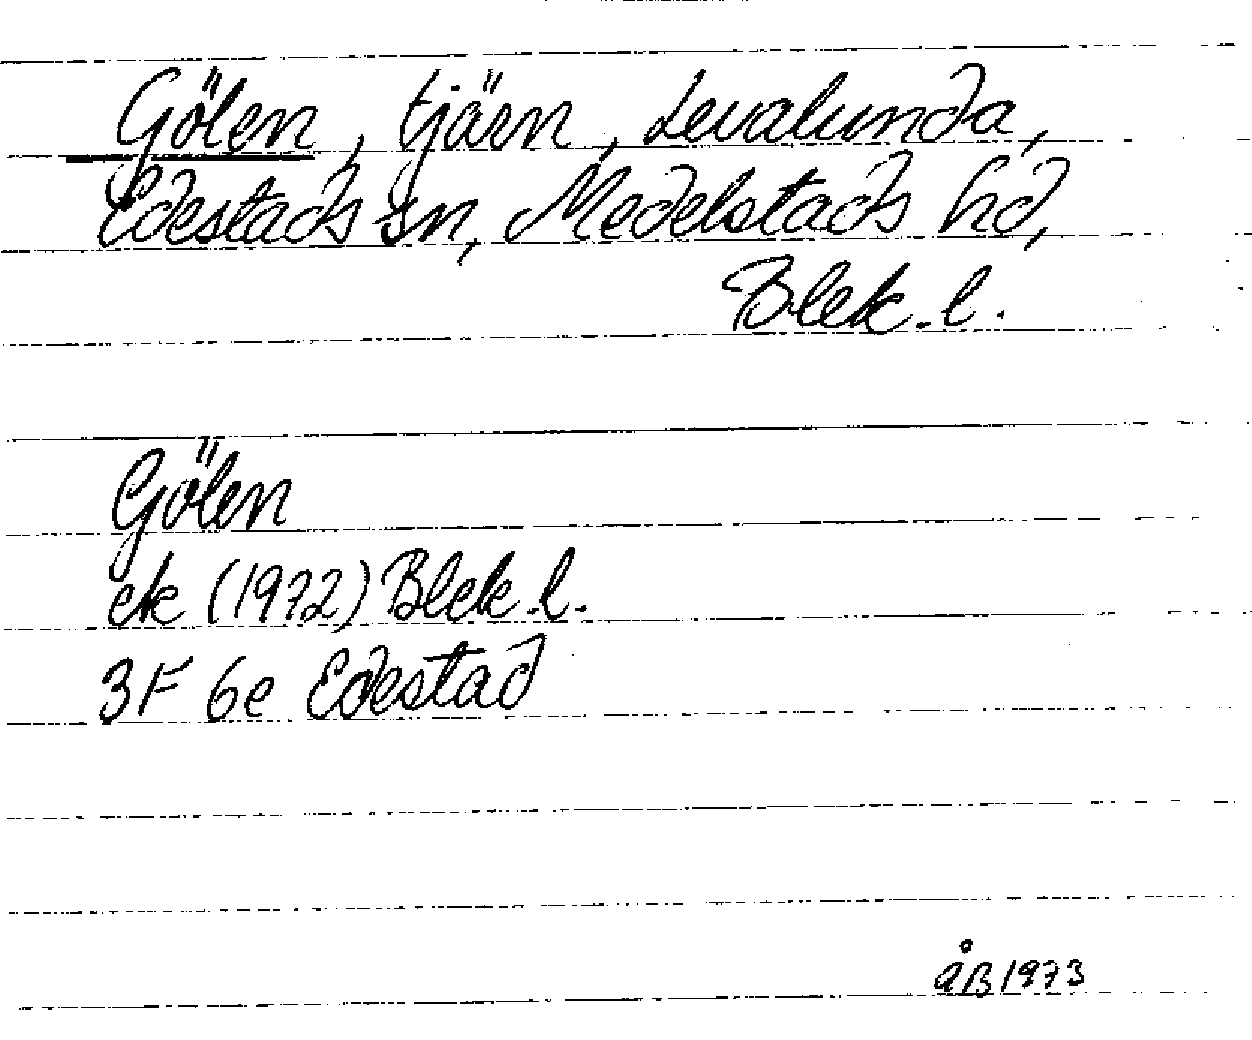 Gölen, tjärn, Levalunda,
Edestads sn, Medelstads hd,
Blek. l.
Gölen
ek (1972) Blek. l.
3F 6e Edestad
åB 1973